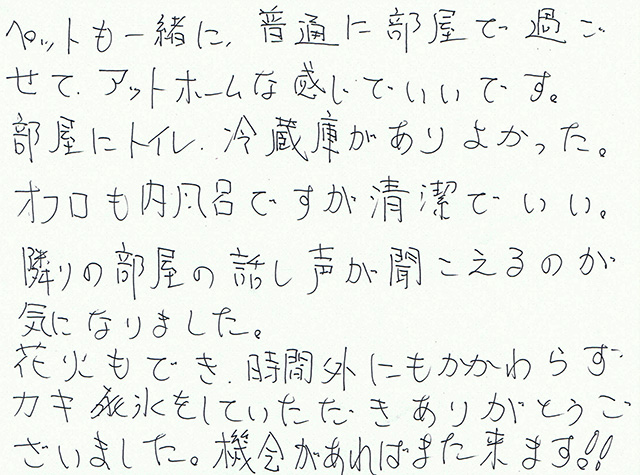 ペットも一緒に、普通に部屋で過ご
せて、アットホームな感じでいいです。
部屋にトイレ、冷蔵庫がありよかった。
オフロも内風呂ですが清潔でいい。
隣りの部屋の話し声が聞こえるのが
気になりました。
花火もでき、時間外にもかかわらず
カキ氷をしていただきありがとうご
ざいました。機会があればまた来ます!!